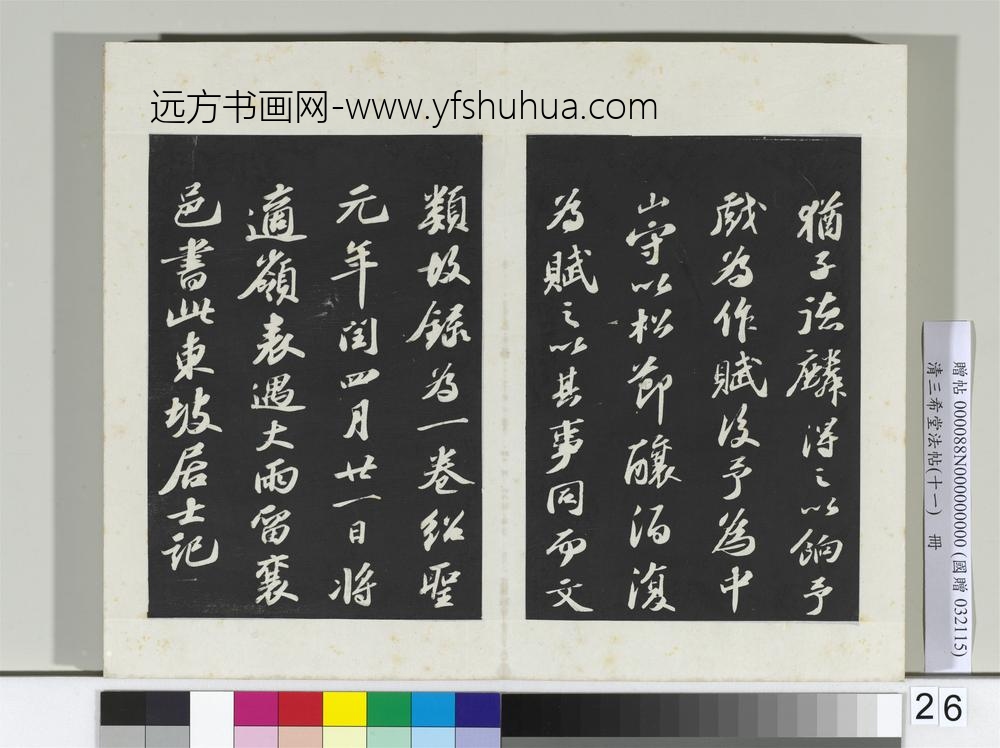 远方书画网-www.yfshuhua.com
猶子德麟得之以餉予
戲為作賦後予為中
山守以松節釀酒復
為賦之以其事同而文
類故錄為一卷紹聖
元年閏四月廿一日將
適嶺表遇大雨留襄
邑書此東坡居士記
贈帖 000088N000000000 (國贈 032115)
清三希堂法帖(十一) 冊
26